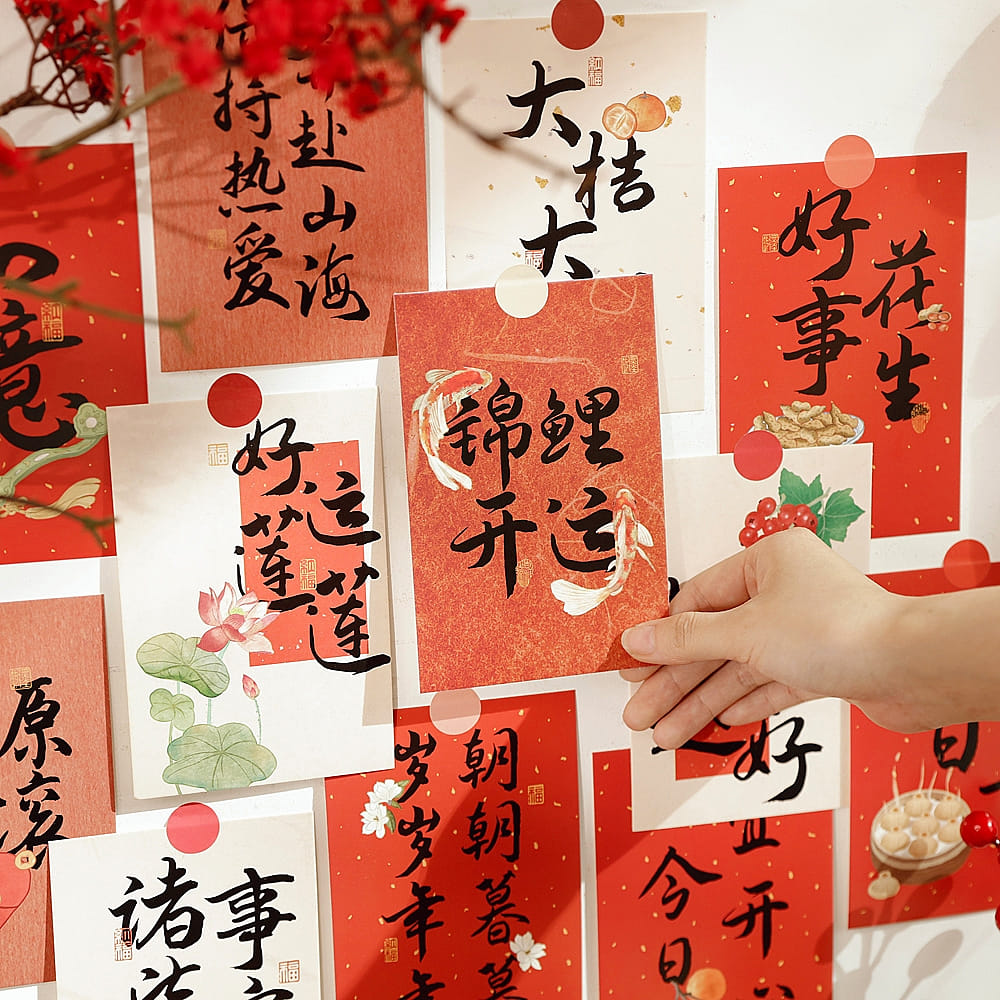 持热爱
赴山海
大桔大
好事
花生
意
好运
莲莲
锦鲤
开运
好
原滚
朝朝暮
岁岁年
诸事
今日
宜开
日
纳福